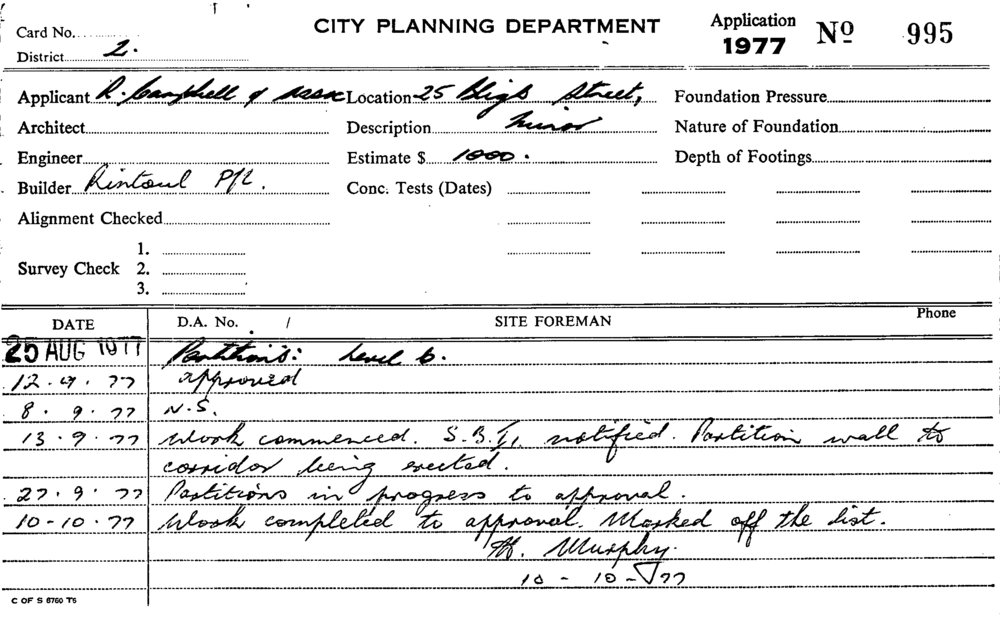 Card No.
CITY PLANNING DEPARTMENT
Application
1977
Nº 995
District 2.
Applicant R. Campbell & Assoc Location 25 Bligh Street, Foundation Pressure
Architect Description Minor Nature of Foundation
Engineer Estimate $ 1000. Depth of Footings
Builder Rintoul P/L. Conc. Tests (Dates)
Alignment Checked
1.
Survey Check 2.
3.
DATE D.A. No. / SITE FOREMAN Phone
25 AUG 1977 Partitions: Level 6.
12. 9. 77 approved
8. 9. 77 N.S.
13-9.77 Work commenced. S.B.I. notified. Partition wall to
corridor being erected.
27.9.77 Partitions in progress to approval.
10-10.77 Work completed to approval. Marked off the list.
M. Murphy.
10 - 10 - 77
C OF S 6760 TS